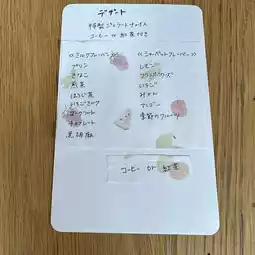 デザート
特製ジェラート
コーヒー or 紅茶付き
<<ミルクフレーバー>>
プリン
きなこ
煎茶
ほうじ茶
いちごミルク
ヨーグルト
チョコレート
黒胡椒
<<シャーベットフレーバー>>
レモン
いちご
みかん
マンゴー
季節のフルーツ
コーヒー or 紅茶